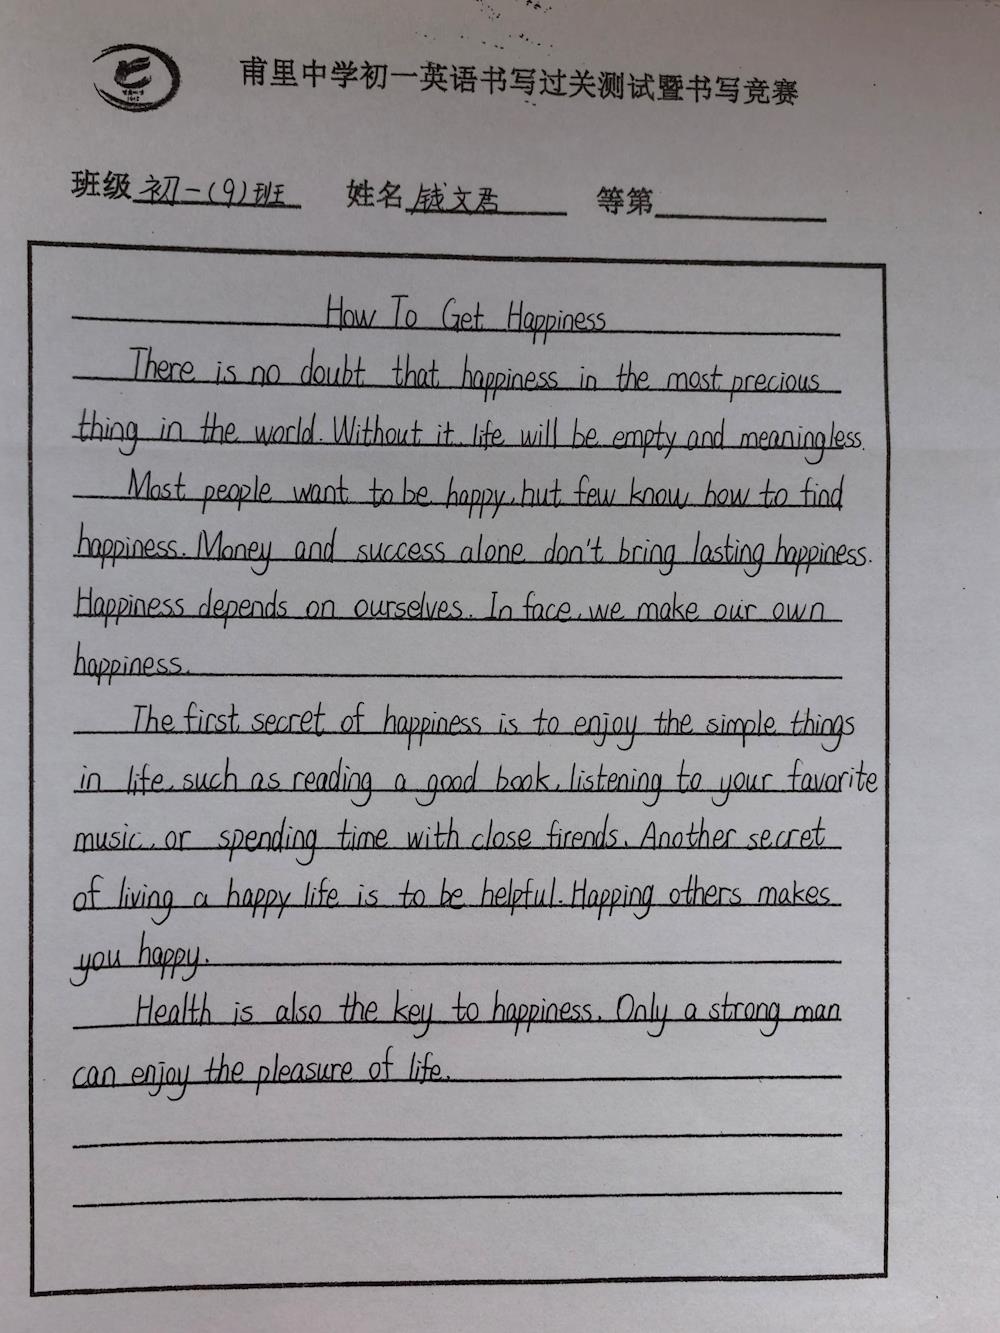 甫里中学初一英语书写过关测试暨书写竞赛
班级 初一(9)班 姓名 钱文君 等第
How To Get Happiness
There is no doubt that happiness in the most precious
thing in the world. Without it, life will be empty and meaningless.
Most people want to be happy, but few know how to find
happiness. Money and success alone don't bring lasting happiness.
Happiness depends on ourselves. In face, we make our own
happiness.
The first secret of happiness is to enjoy the simple things
in life, such as reading a good book, listening to your favorite
music, or spending time with close firends. Another secret
of living a happy life is to be helpful. Happing others makes
you happy.
Health is also the key to happiness. Only a strong man
can enjoy the pleasure of life.